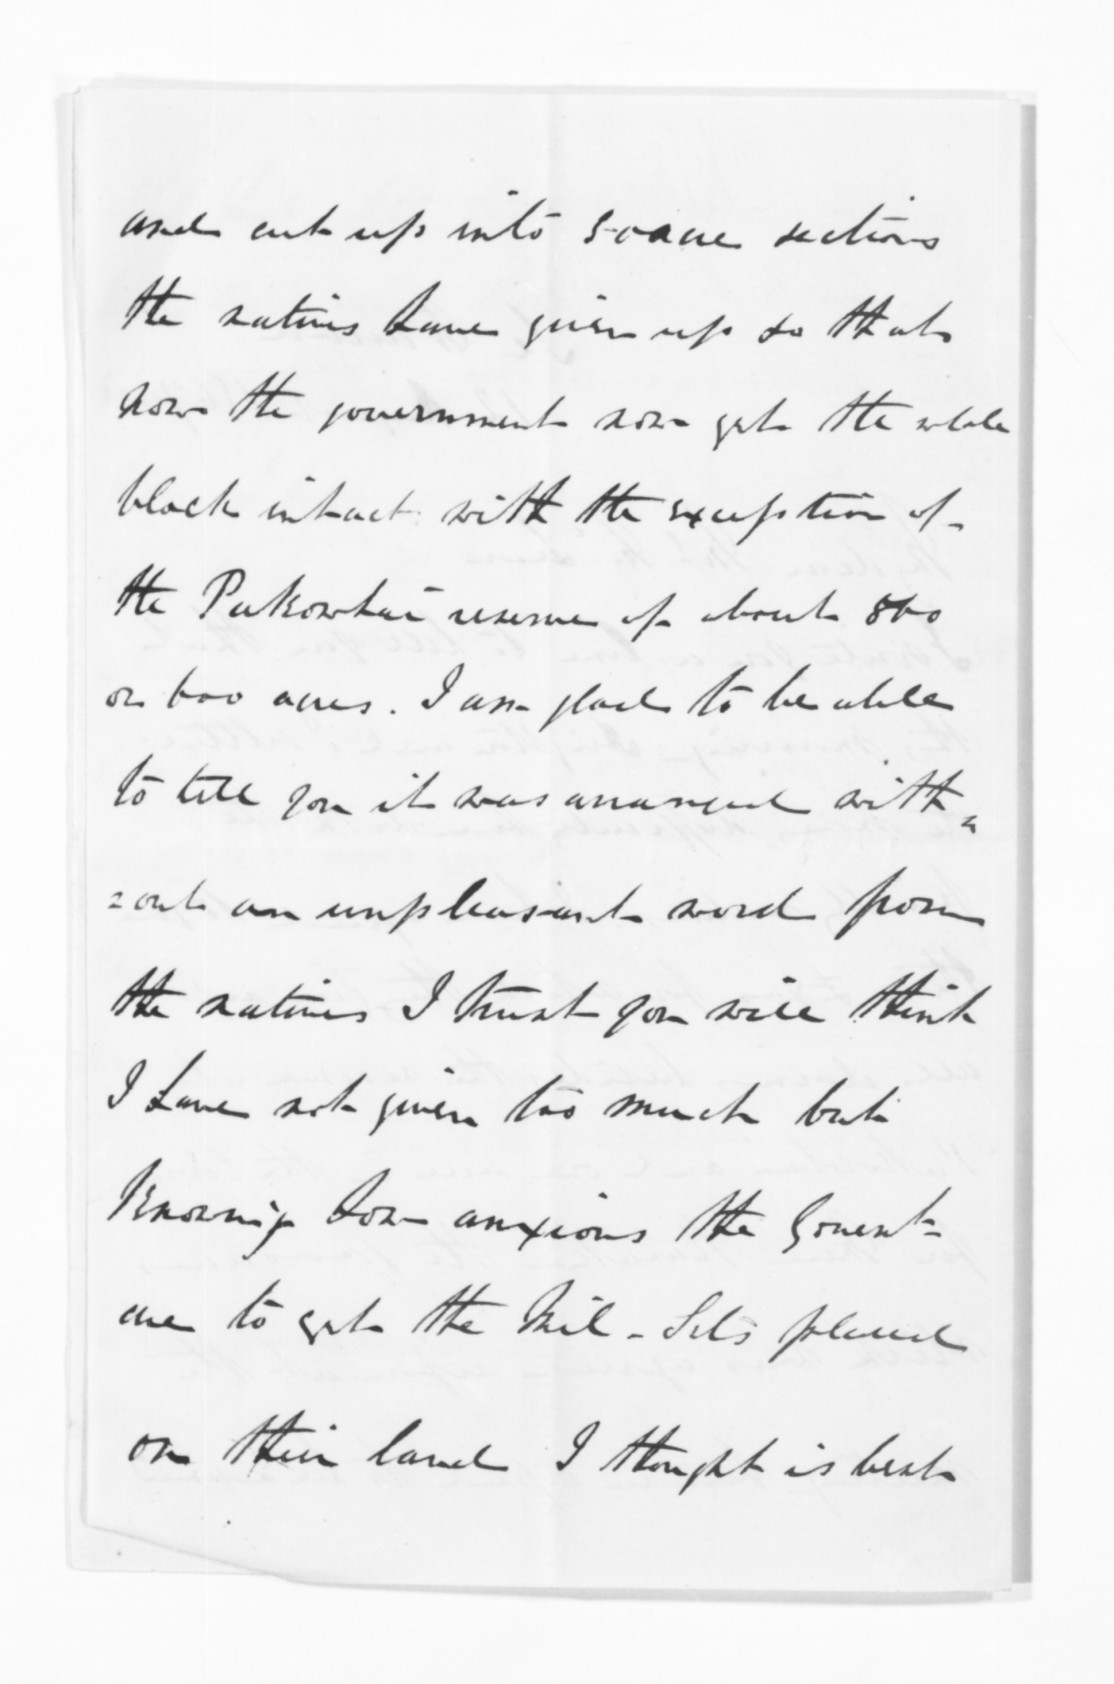 and cut up into 50 acre sections
the natives have given up so that
now the government now get the whole
block intact with the exception of
the Pukowhai reserve of about 500
or 600 acres. I am glad to be able
to tell you it was arranged with=
=out an unpleasant word from
the natives I trust you will think
I have not given too much but
Knowing how anxious the Govert-
are to get the Mil - Sets placed
on their land I thought is best